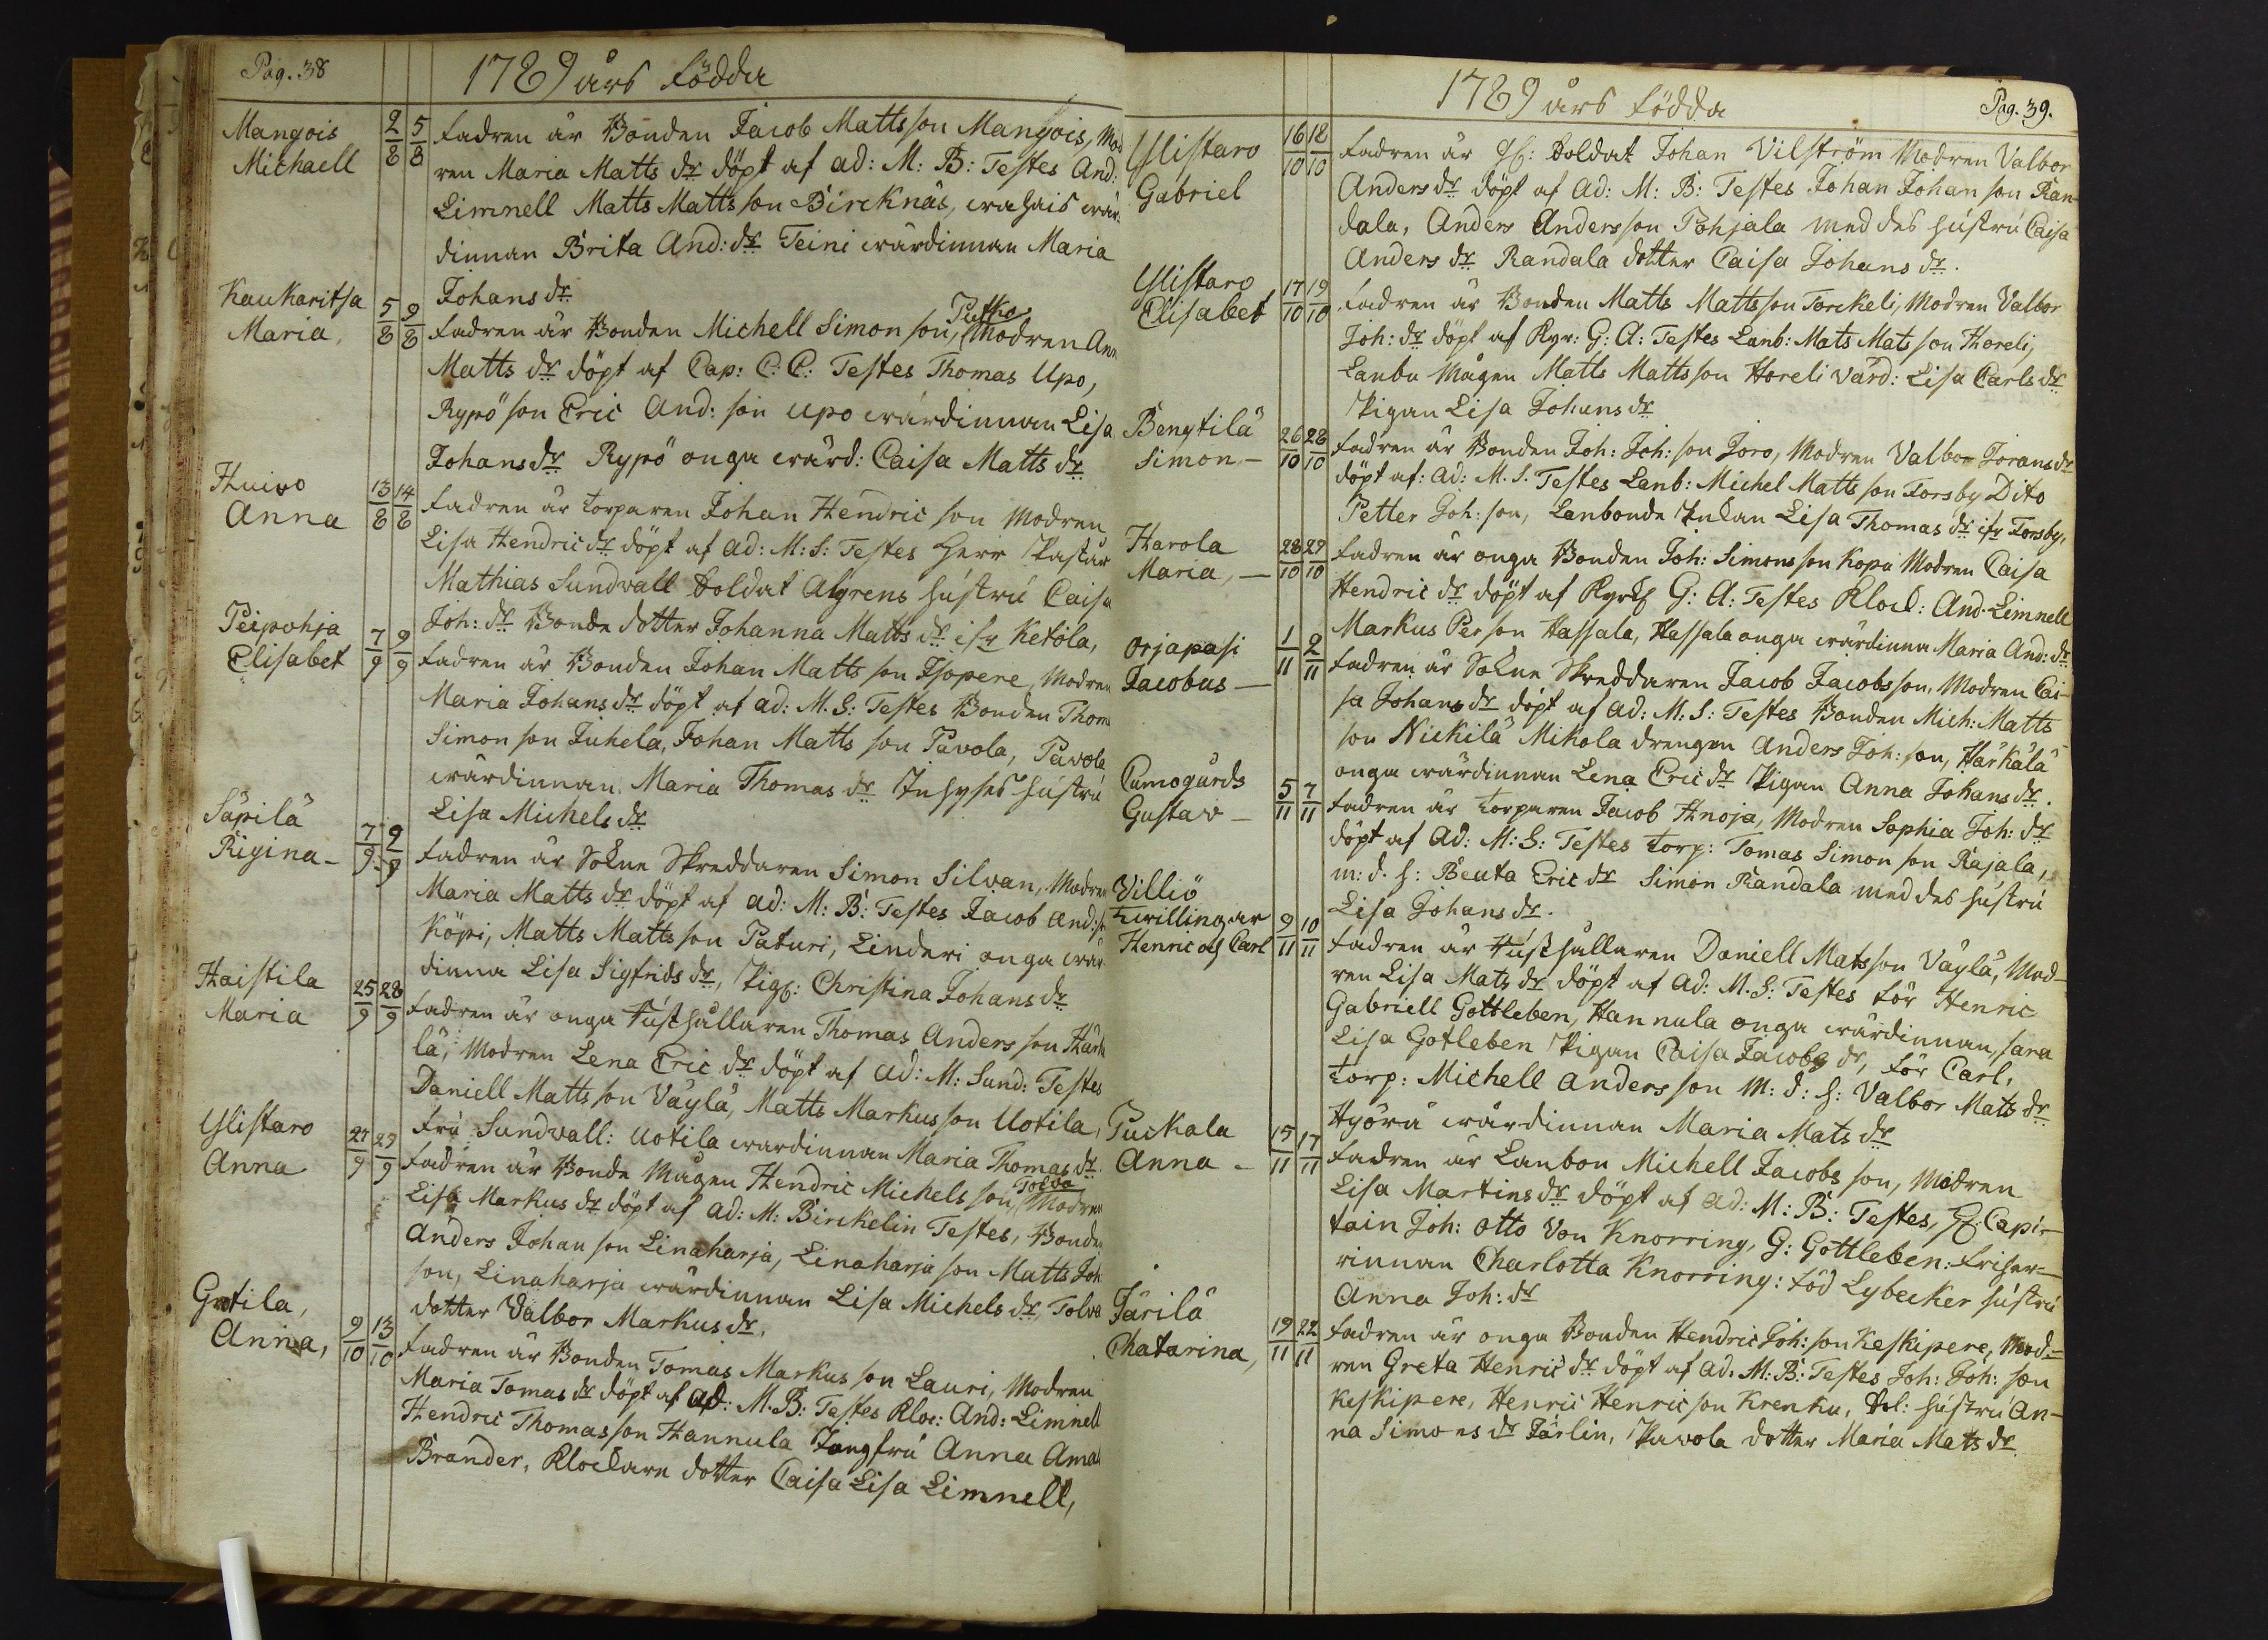 Pag. 38
1789 års födda
Mangois
Michaell
2/8 5/8
fadren är Bonden Jacob Matts son Mangois, Mod
ren Maria Matts dr döpt af ad: M: B: Testes And:
Limnell Matts Matts son Bircknäs, wahais wär
dinnan Brita And: dr Teini wärdinnan Maria
Johans dr
Kaukaritsa
Maria,
5/8 9/8
fadren är Bonden Michell Simon son, Putko Modren Ann
Matts dr döpt af Cap: C: C: Testes Thomas Upo,
Rypö son Eric And: son upo wärdinnan Lisa
Johans dr Rypö onga wärd: Caisa Matts dr
Huivo
Anna
13/8 14/8
fadren är torparen Johan Hendric son Modren
Lisa Hendric dr döpt af ad: M: S: Testes Herr Pastur
Mathias Sundvall Soldat Algrens hustru Caisa
Joh: dr Bonde dotter Johanna Matts dr ifr Ketola,
Peipohja
Elisabet
7/9 9/9
fadren är Bonden Johan Matts son Isopere, Modren
Maria Johans dr döpt af ad: M. S: Testes Bonden Thom
Simon son Juhela, Johan Matts son Pavola, Pavola
wärdinnan Maria Thomas dr Inhyses hustru
Lisa Michels dr
Säpilä
Rigina -
7/9 9/9
fadren är Sokne Skreddaren Simon Silvan, Modre
Maria Matts dr döpt af ad: M: B: Testes Jacob And: s
Köpi, Matts Matts son Paturi, Linderi onga wär
dinna Lisa Sigfrids dr, Pig: Christina Johans dr
Haistila
Maria
25/9 28/9
fadren är onga Husthållaren Thomas Anders son Härk
lä, Modren Lena Eric dr döpt af ad: M: Sund: Testes
Daniell Matts son Väylä, Matts Markus son Uotila,
fru Sundvall: Uotila wardinnan Maria Thomas dr
Ylistaro
Anna
27/9 29/9
fadren är Bonde Mågen Hendric Michels son, Tolva Modren
Lisa Markus dr döpt af ad: M: Birckelin Testes, Bonde
Anders Johan son Linaharja, Linaharja son Matts Joh
son, Linaharja wärdinnan Lisa Michels dr, Tolva
dotter Valbor Markus dr,
Gotila,
Anna,
9/10 13/10
fadren är Bonden Tomas Markus son Lauri, Modren
Maria Tomas dr döpt af ad: M. B: Testes Kloc: And: Limnell
Hendric Thomas son Hannula Jungfru Anna Ama
Brander, Klockare dotter Caisa Lisa Limnell,
1789 års födda
Pag. 39.
Ylistaro
Gabriel
16/10 18/10
fadren är Soldat Johan Vilström Modren Valbor
Anders dr döpt af Ad: M: B: Testes Johan Johan son Ran-
dala, Anders Anders son Pohjala med des hustru Caisa
Anders dr Randala dotter Caisa Johans dr.
Ylistaro
Elisabet
17/10 19/10
fadren är Bonden Matts Matts son Torckeli, Modren Valbor
Joh: dr döpt af Kyr: G: A: Testes Lanb: Mats Mats son Horeli,
Lanbu Mågen Matts Matts son Horeli värd: Lisa Carls dr
Pigan Lisa Johans dr
Bengtilä
Simon -
26/10 28/10
fadren är Bonden Joh: Joh: son Joro, Modren Valbor Jorans dr
döpt af: ad: M. S. Testes Lanb: Michel Matts son Forsby Dito
Petter Joh: son, Lanbonde Enkan Lisa Thomas dr ifr Forsby.
Harola
Maria, -
28/10 29/10
fadren är onga Bonden Joh: Simons son Kopa Modren Caisa
Hendric dr döpt af Kyrk G: A: Testes Klock: And. Limnell
Markus Per son Hassala, Hassala onga wärdinna Maria And: dr
Orjapasi
Jacobus -
1/11 2/11
fadren är Sokne Skreddaren Jacob Jacobs son, Modren Cai-
sa Johans dr döpt af Ad: M. S: Testes Bonden Mich: Matts
son Nickilä Mikola drengen Anders Joh: son, Härkälä
onga wärdinnan Lena Eric dr Pigan Anna Johans dr.
Cumogårds
Gustav -
5/11 7/11
fadren är torparen Jacob Knoja, Modren Sophia Joh: dr
döpt af Ad: M: S: Testes torp: Tomas Simon son Rajala,
m: d. h: Beata Eric dr Simon Randala med des hustru
Lisa Johans dr.
Villiö
twillingar
Henric och Carl
9/11 10/11
fadren är Husthållaren Daniell Matsson Väylä, Mod-
ren Lisa Mats dr döpt af Ad: M. S: Testes för Henric
Gabriell Gottleben, Hannula onga wärdinnan, Sara
Lisa Gotleben Pigan Caisa Jacobs dr, för Carl,
torp: Michell Anders son M: d: h: Valbor Mats dr
Hyörä wärdinnan Maria Mats dr
Puckala
Anna -
15/11 17/11
fadren är Lanbon Michell Jacobs son, Modren
Lisa Martins dr döpt af ad: M: B: Testes, H: Capi-
tain Joh: Otto Von Knorring, G: Gottleben: friher-
rinnan Charlotta Knorring: föd Lybecker hustru
Anna Joh: dr
Järilä
Chatarina,
19/11 22/11
fadren är onga Bonden Hendric Joh: son Keskipere, Mod-
ren Greta Henric dr döpt af ad. M: B: Testes Joh: Joh: son
Keskipere, Henric Henric son Krenku, Sol: hustru An-
na Simons dr Järlin, Pavola dotter Maria Mats dr